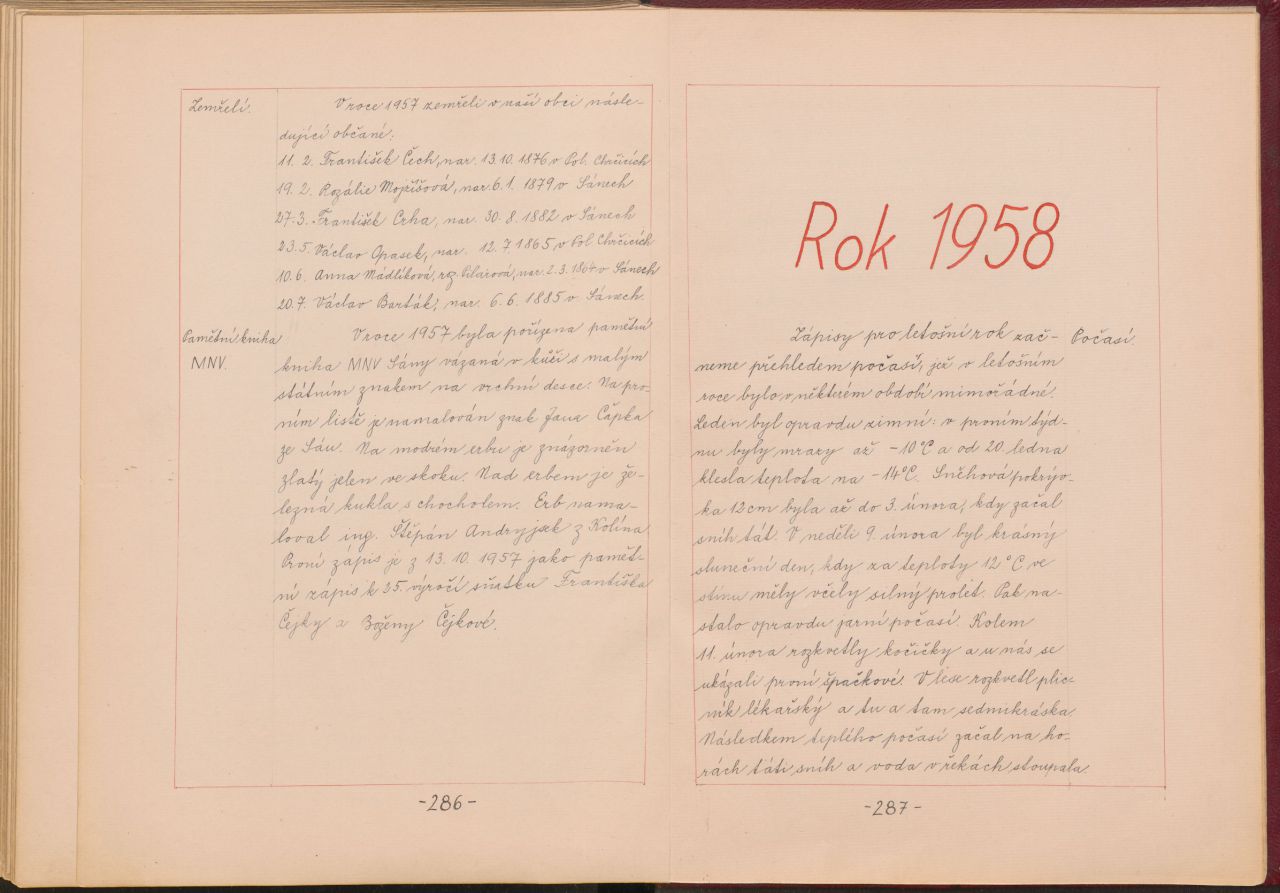 Zemřelí.
V roce 1957 zemřeli v naší obci násle-
dující občané:
11. 2. František Čech, nar. 13. 10. 1876 v Pol. Chrčicích
19. 2. Rozálie Mojžíšová, nar. 6. 1. 1879 v Sánech
27. 3. František Crha, nar. 30. 8. 1882 v Sánech
23. 5. Václav Opasek, nar. 12. 7. 1865 v Pol. Chrčicích
10. 6. Anna Mádlíková, roz. Pilařová, nar. 2. 3. 1864 v Sánech
20. 7. Václav Barták, nar. 6. 6. 1885 v Sánech.
Pamětní kniha
MNV.
V roce 1957 byla pořízena pamětní
kniha MNV Sány vázaná v kůži s malým
státním znakem na vrchní desce. Na prv-
ním listě je namalován znak Jana Čapka
ze Sán. Na modrém erbu je znázorněn
zlatý jelen ve skoku. Nad erbem je že-
lezná kukla s chocholem. Erb nama-
loval ing. Štěpán Andryjsek z Kolína.
První zápis je z 13. 10. 1957 jako pamět-
ní zápis k 35. výročí sňatku Františka
Čejky a Boženy Čejkové.
-286-
Rok 1958
Počasí.
Zápisy pro letošní rok zač-
neme přehledem počasí, jež v letošním
roce bylo v některém období mimořádné.
Leden byl opravdu zimní: v prvním týd-
nu byly mrazy až -10°C a od 20. ledna
klesla teplota na -14°C. Sněhová pokrýv-
ka 12 cm byla až do 3. února, kdy začal
sníh tát. V neděli 9. února byl krásný
sluneční den, kdy za teploty 12°C ve
stínu měly včely silný prolet. Pak na-
stalo opravdu jarní počasí. Kolem
11. února rozkvetly kočičky a u nás se
ukázali první špačkové. V lese rozkvetl plic-
ník lékařský a tu a tam sedmikráska.
Následkem teplého počasí začal na ho-
rách táti sníh a voda v řekách stoupala.
-287-